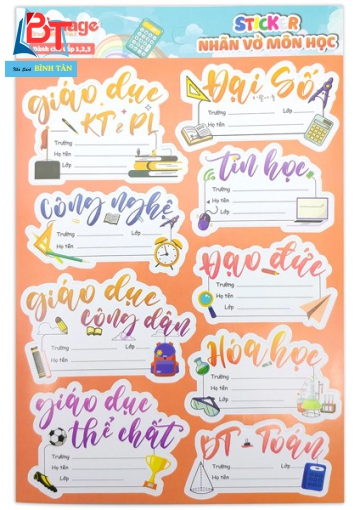 BT
Nhà Sách BÌNH TÂN
Dành cho lớp 1,2,3
STICKER
NHÃN VỞ MÔN HỌC
giáo dục
KT & PL
Trường
Họ tên
Lớp
Đại Số
Trường
Họ tên
Lớp
công nghệ
Trường
Họ tên
Lớp
tin học
Trường
Họ tên
Lớp
giáo dục
công dân
Trường
Họ tên
Lớp
Đạo đức
Trường
Họ tên
Lớp
giáo dục
thể chất
Trường
Họ tên
Lớp
Hóa học
Trường
Họ tên
Lớp
BT Toán
Trường
Họ tên
Lớp